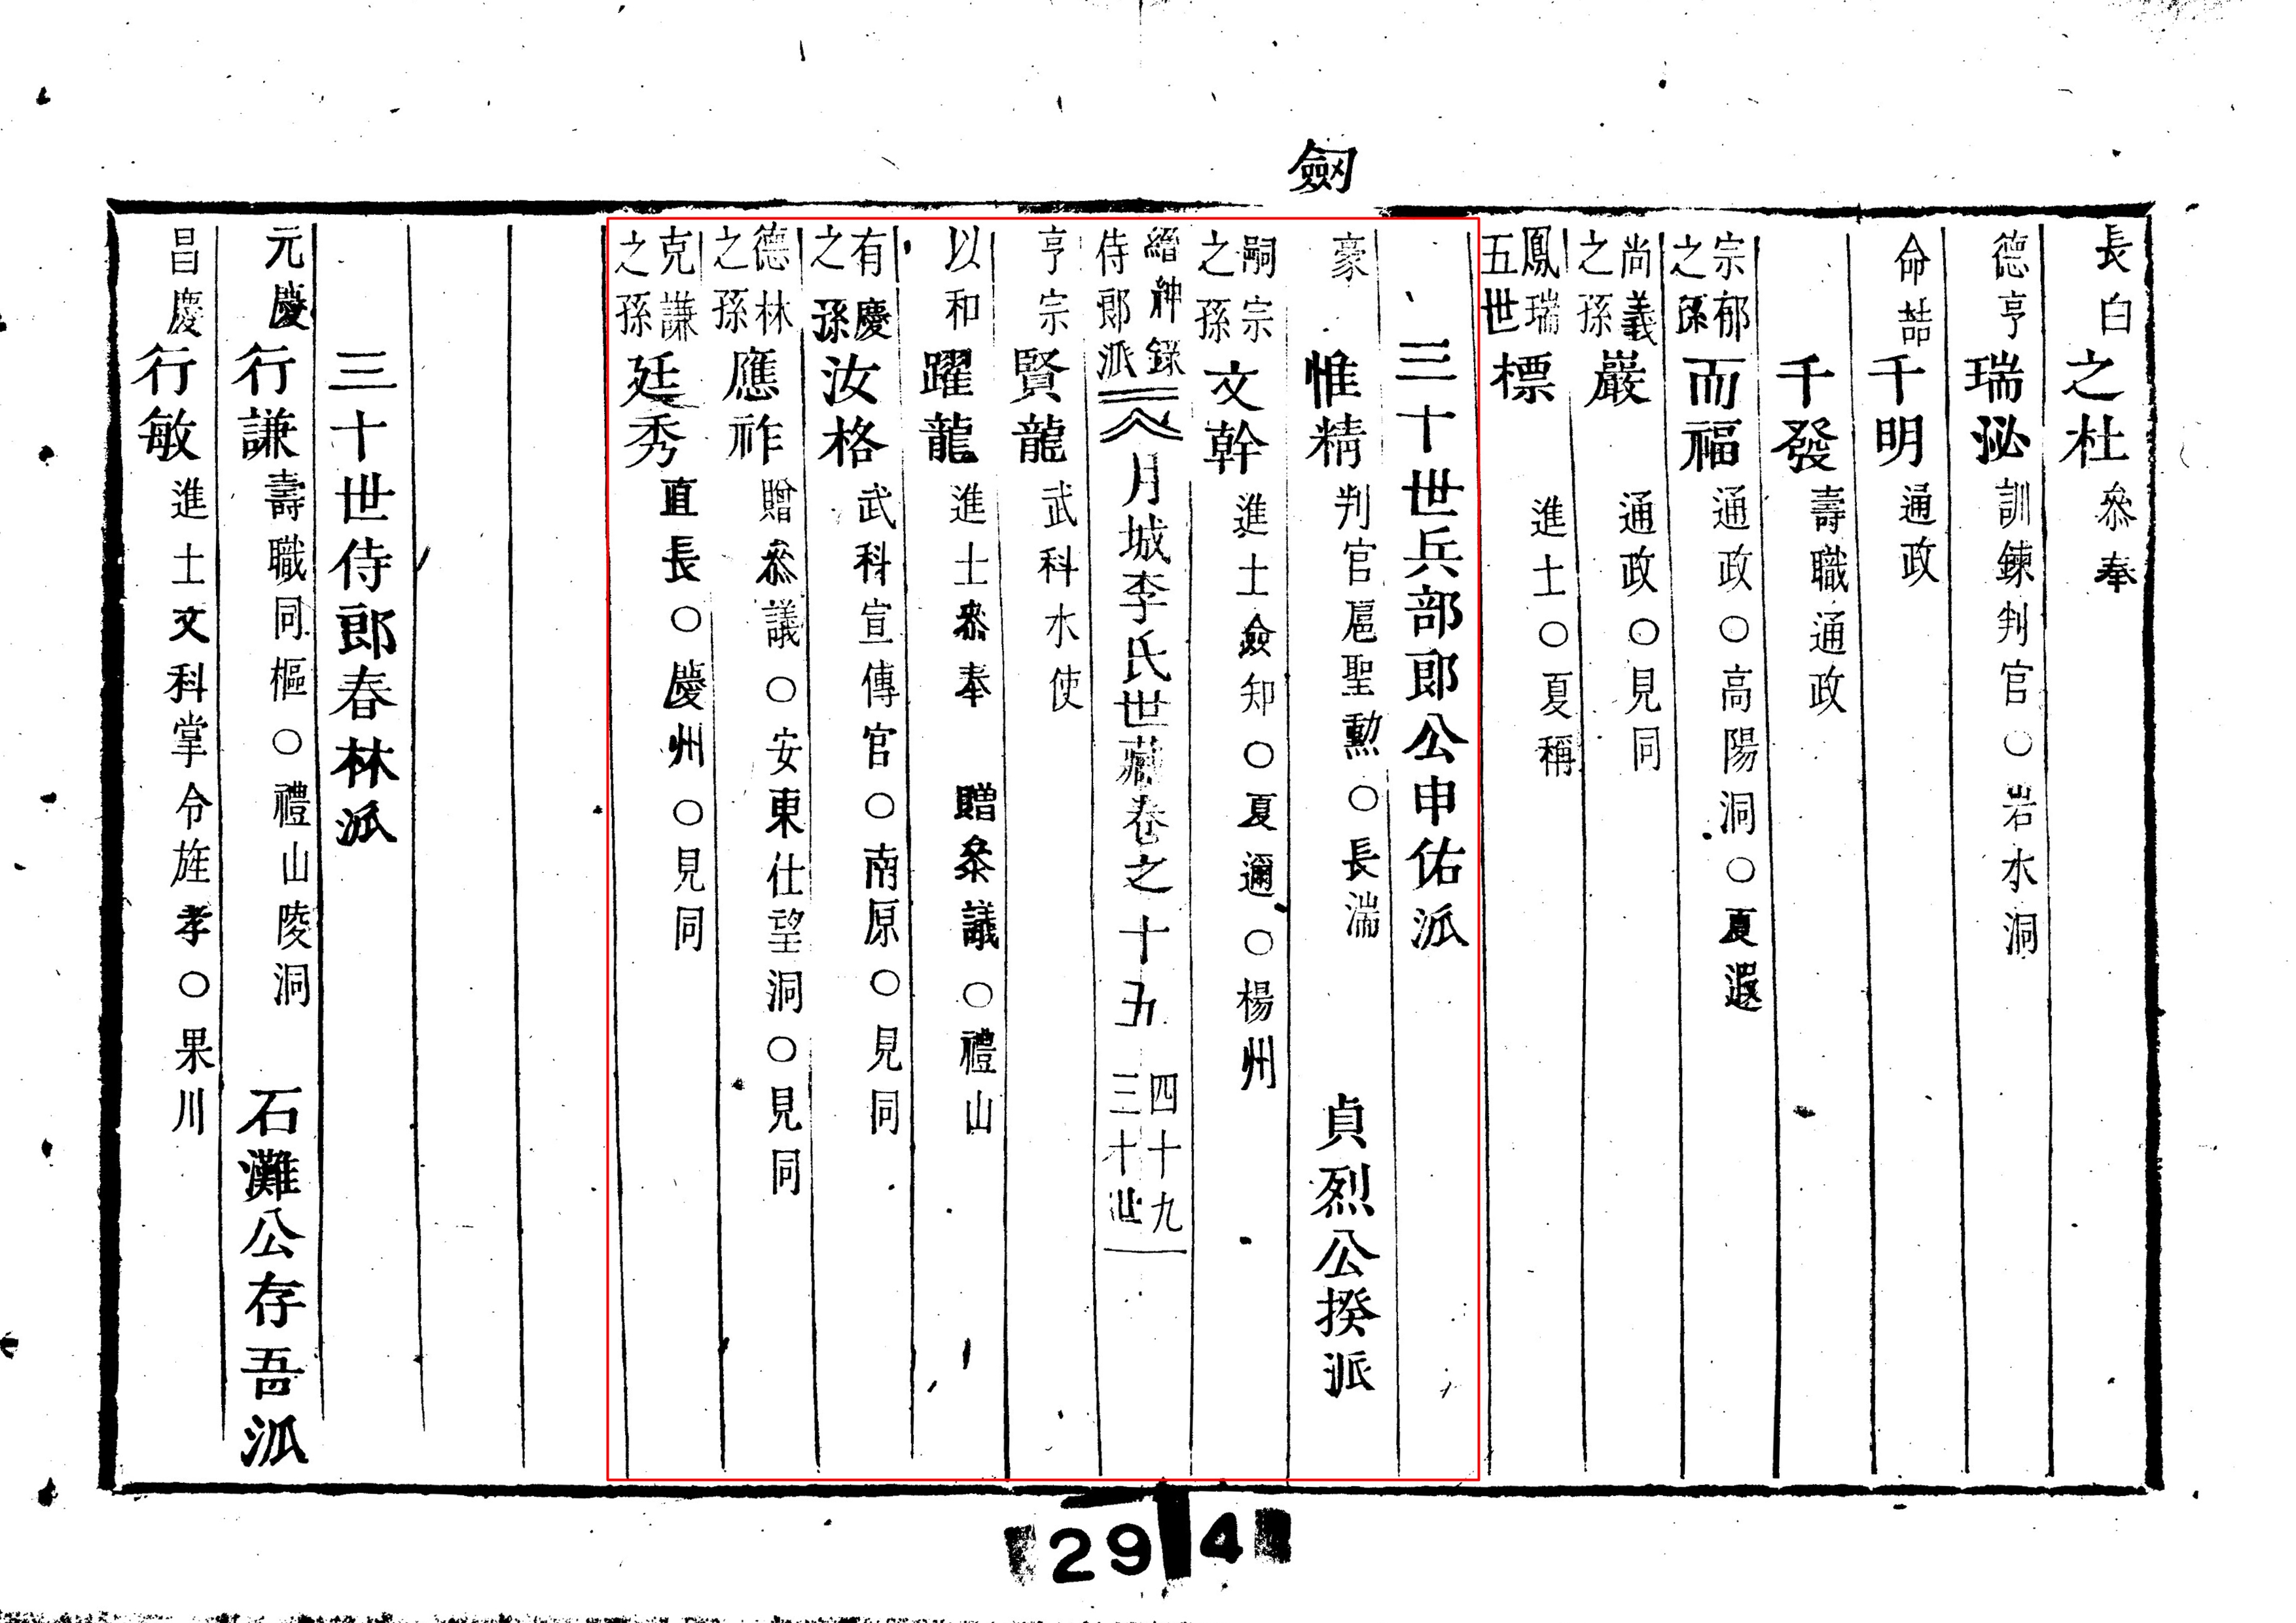 劒
長白之杜參奉
德亨瑞泌訓鍊判官○岩水洞
命喆千明通政
千發壽職通政
宗郁之孫而福通政○高陽洞○夏遐
尚義之孫巖通政○見同
鳳瑞五世標進士○夏稱
三十世兵部郞公申佑派
豪惟精判官扈聖勳○長湍 貞烈公揆派
嗣宗之孫文幹進士僉知○夏邇○楊州
縉紳錄侍郞派 月城李氏世藏卷之十五 四十九 三十世
亨宗賢龍武科水使
以和躍龍進士參奉 贈參議○禮山
有慶之孫汝格武科宣傳官○南原○見同
德林之孫應祚贈參議○安東仕望洞○見同
克謙之孫廷秀直長○慶州○見同
三十世侍郞春林派
元慶行謙壽職同樞○禮山陵洞 石灘公存吾派
昌慶行敏進士文科掌令旌孝○果川
294